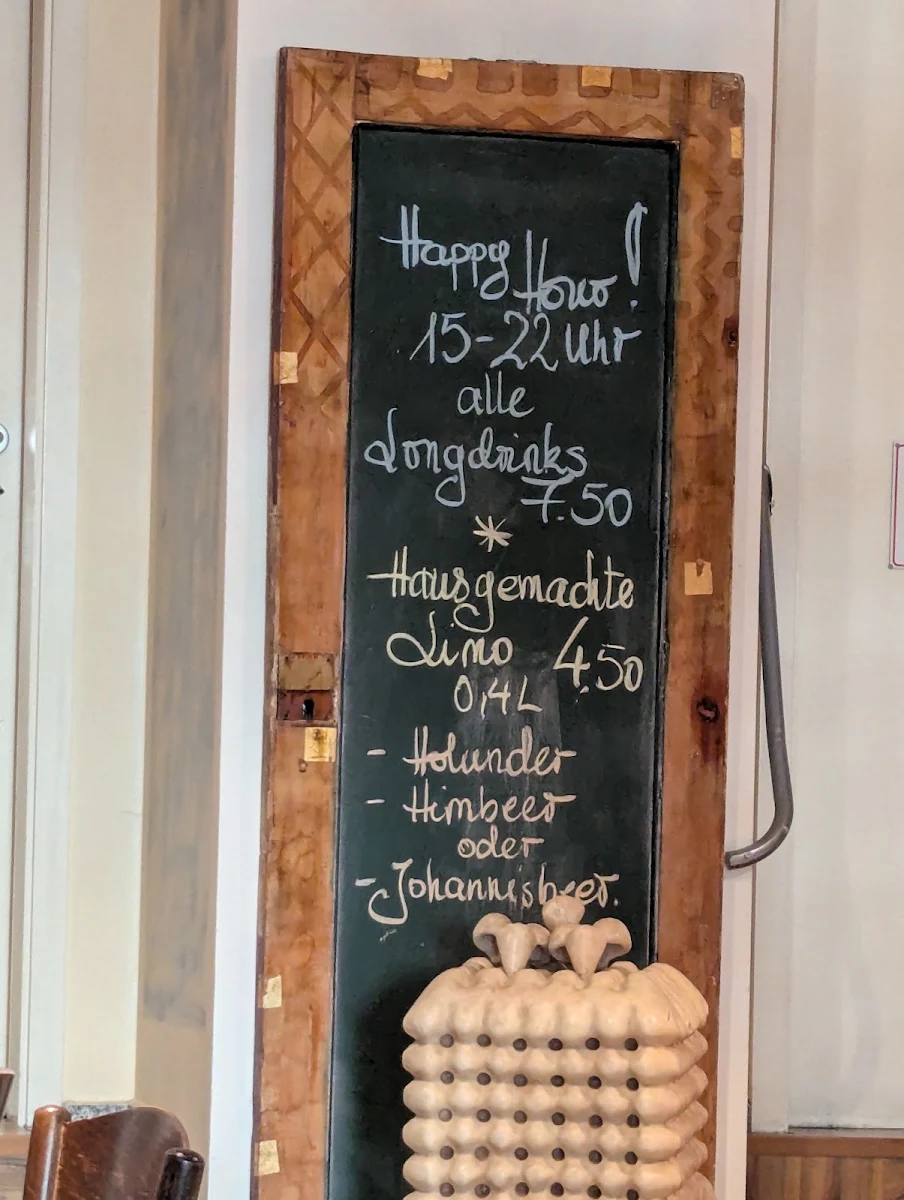 Happy Hour!
15-22 Uhr
alle
Longdrinks
7.50
*
Hausgemachte
Limo 4.50
0,4L
- Holunder
- Himbeer
oder
- Johannisbeer.